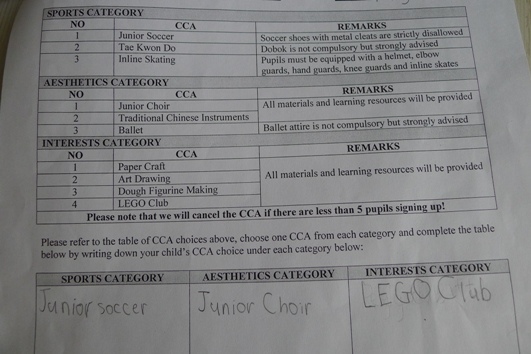 SPORTS CATEGORY
NO CCA REMARKS
1 Junior Soccer Soccer shoes with metal cleats are strictly disallowed
2 Tae Kwon Do Dobok is not compulsory but strongly advised
3 Inline Skating Pupils must be equipped with a helmet, elbow
guards, hand guards, knee guards and inline skates
AESTHETICS CATEGORY
NO CCA REMARKS
1 Junior Choir All materials and learning resources will be provided
2 Traditional Chinese Instruments
3 Ballet Ballet attire is not compulsory but strongly advised
INTERESTS CATEGORY
NO CCA REMARKS
1 Paper Craft
2 Art Drawing All materials and learning resources will be provided
3 Dough Figurine Making
4 LEGO Club
Please note that we will cancel the CCA if there are less than 5 pupils signing up!
Please refer to the table of CCA choices above, choose one CCA from each category and complete the table
below by writing down your child's CCA choice under each category below:
SPORTS CATEGORY AESTHETICS CATEGORY INTERESTS CATEGORY
Junior soccer Junior Choir LEGO Club